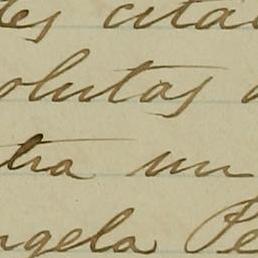 tes citad
olutas a
tra un
ngela Pe